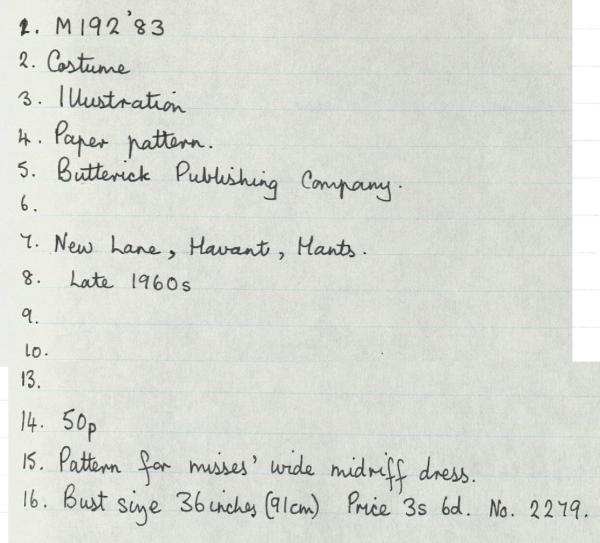 1. M192'83
2. Costume
3. Illustration
4. Paper pattern.
5. Butterick Publishing Company.
6.
7. New Lane, Havant, Hants.
8. Late 1960s
9.
10.
13.
14. 50p
15. Pattern for misses' wide midriff dress.
16. Bust size 36 inches (91cm) Price 3s 6d. No. 2279.